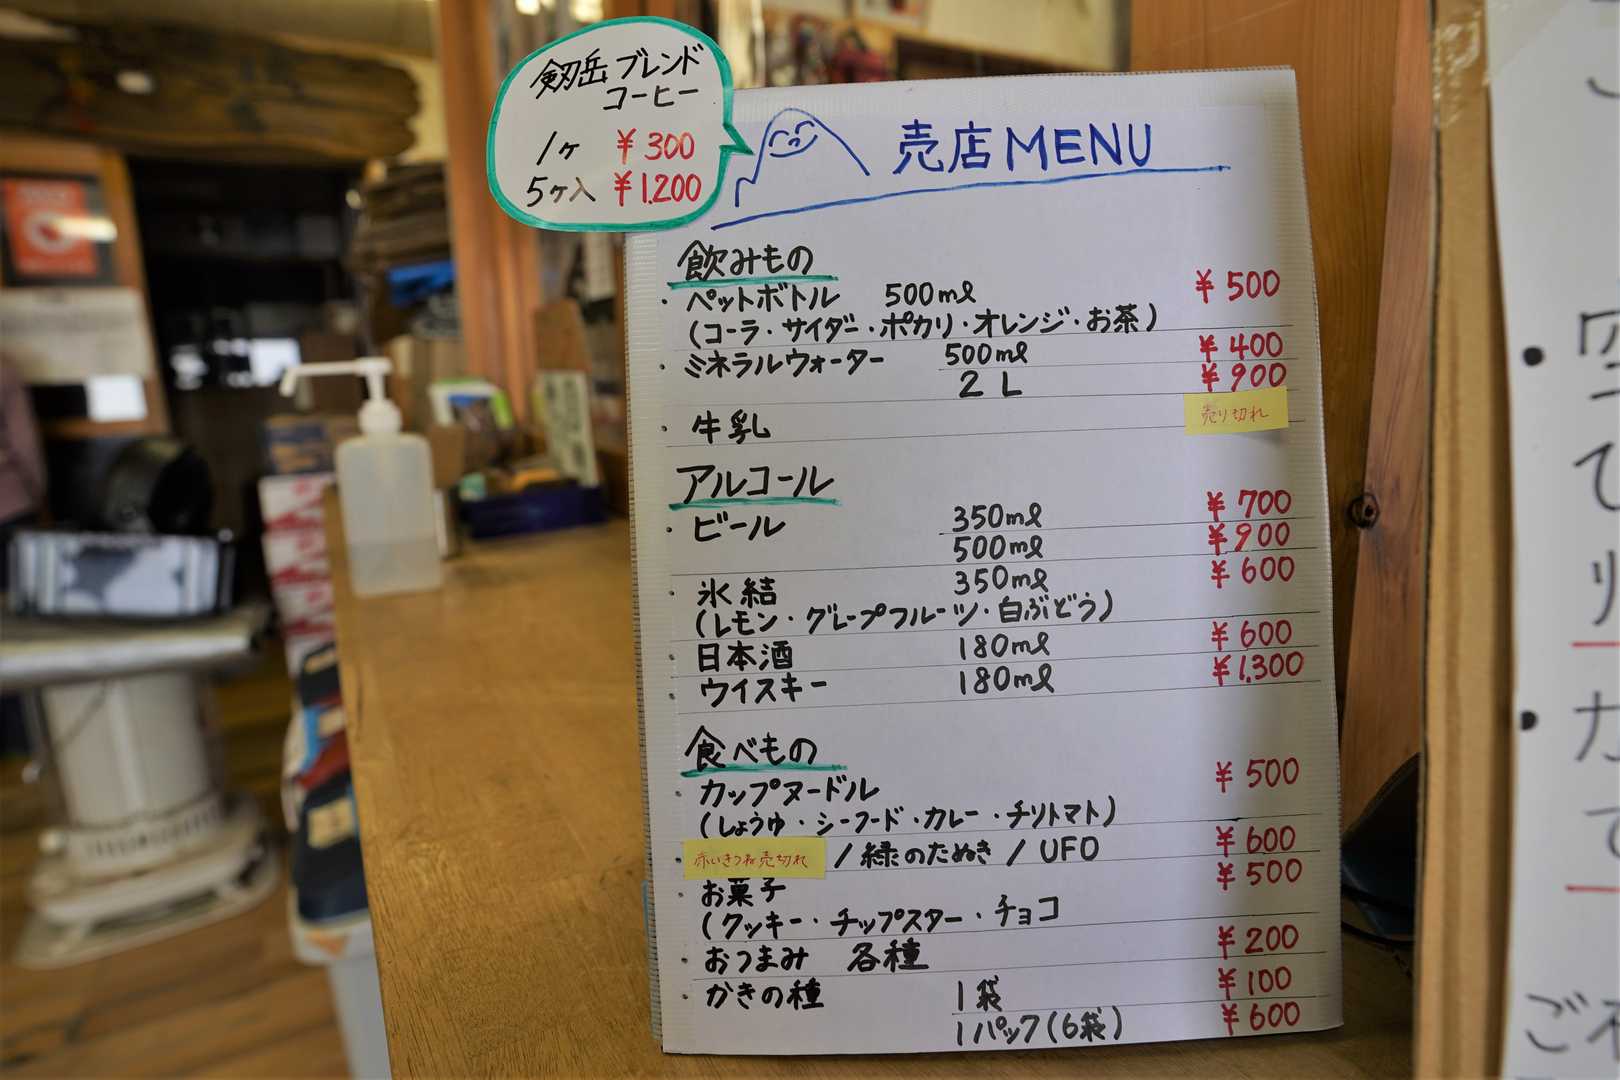 剱岳ブレンド
コーヒー
1ヶ ¥300
5ヶ入 ¥1.200
売店MENU
飲みもの
・ペットボトル 500ml ¥500
(コーラ・サイダー・ポカリ・オレンジ・お茶)
・ミネラルウォーター 500ml ¥400
2L ¥900
・牛乳 売り切れ
アルコール
・ビール 350ml ¥700
500ml ¥900
・氷結 350ml ¥600
(レモン・グレープフルーツ・白ぶどう)
・日本酒 180ml ¥600
・ウイスキー 180ml ¥1.300
食べもの
・カップヌードル ¥500
(しょうゆ・シーフード・カレー・チリトマト)
・赤いきつね売切れ /緑のたぬき/UFO ¥600
お菓子 ¥500
(クッキー・チップスター・チョコ
・おつまみ 各種 ¥200
・かきの種 1袋 ¥100
1パック(6袋) ¥600